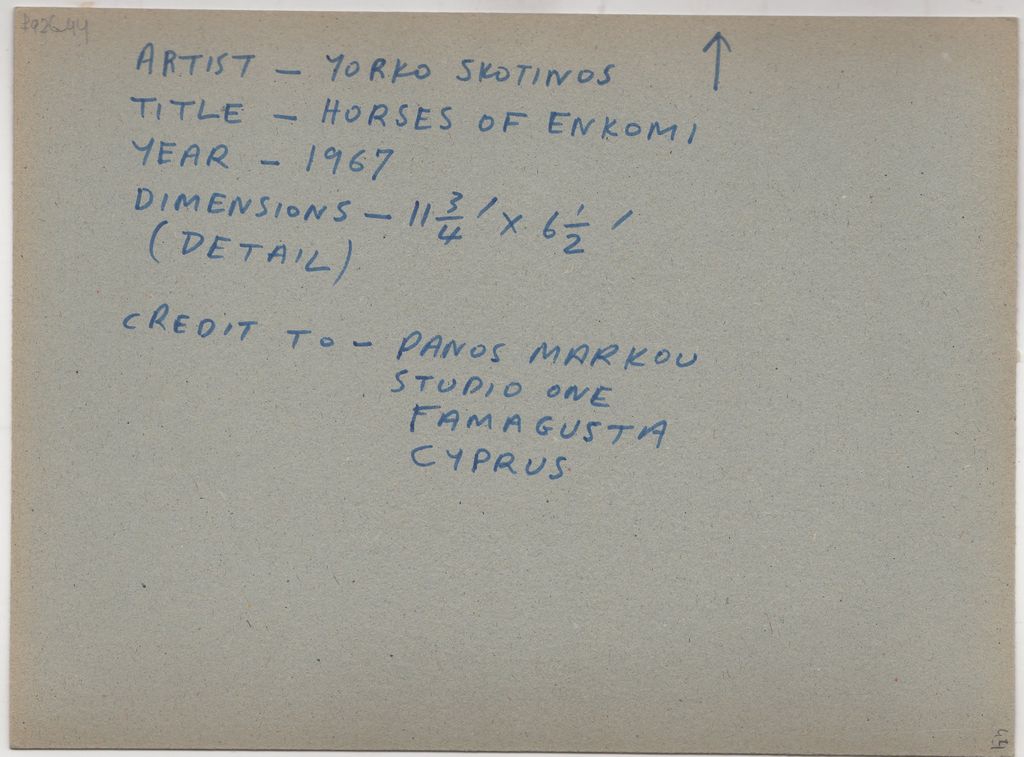 ARTIST – YORKO SKOTINOS
TITLE – HORSES OF ENKOMI
YEAR – 1967
DIMENSIONS – 11 3/4 ' X 6 1/2 '
(DETAIL)
CREDIT TO – PANOS MARKOU
STUDIO ONE
FAMAGUSTA
CYPRUS